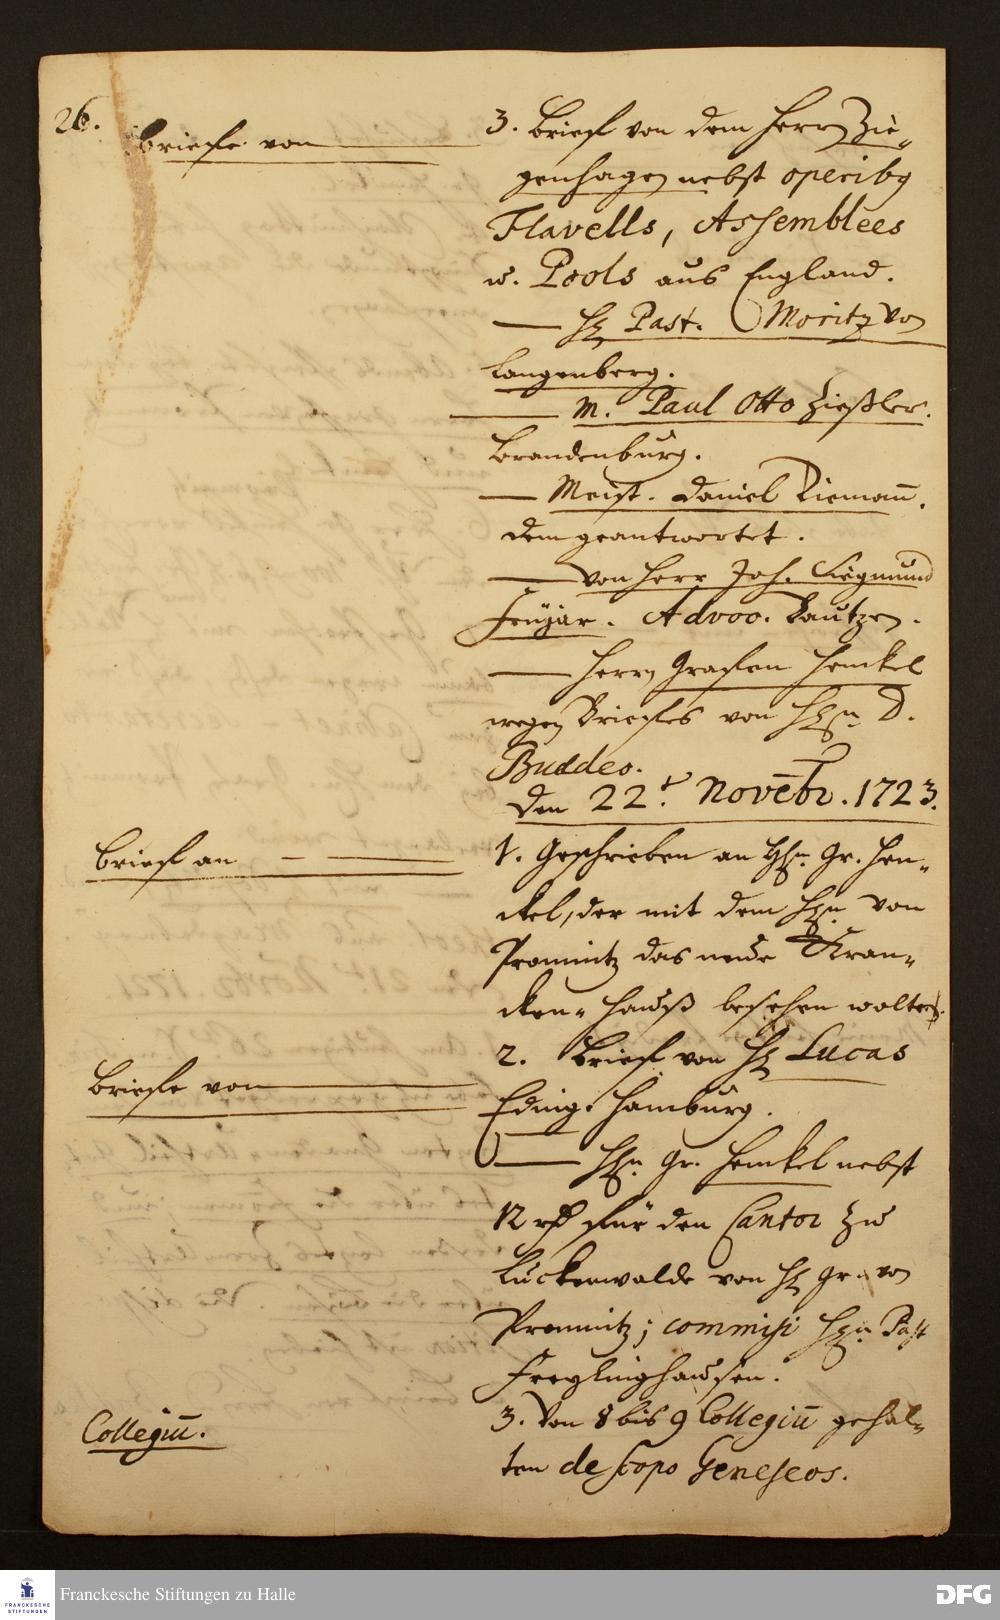 26.
briefe von
3. brief von dem Herrn Zie-
genhagen nebst operibq
Flavells, Assemblees
u. Pools aus England.
— H. Past. Moritz von
Langenberg.
— M. Paul Otto Zießler.
brandenburg.
— Meist. Daniel Riemann̄.
dem geantwortet.
— von Herr Joh. Siegmund
. Advoc. Bautzen.
— Herrn Grafen Henckel
wegen Briefes von Hhn. D.
Buddeo.
den 22.t Novēbr. 1723.
brief an — —
1. Geschrieben an Hhn. Gr. Hen-
ckel, der mit dem Hhn. von
Promnitz das neüe Kran-
cken- Hauß besehen wolte.
briefe von
2. brief von H. Lucas
Eding. Hamburg.
— Hhn. Gr. Henckel nebst
12 rth für den Cantor zu
Luckenwalde von H. Gr. von
Promnitz; commisi Hhn. Past
Freylinghausen.
Collegiū.
3. Von 8 bis 9 Collegiū gehal-
ten de scopo Geneseos.
FRANCKESCHE STIFTUNGEN
Franckesche Stiftungen zu Halle
DFG